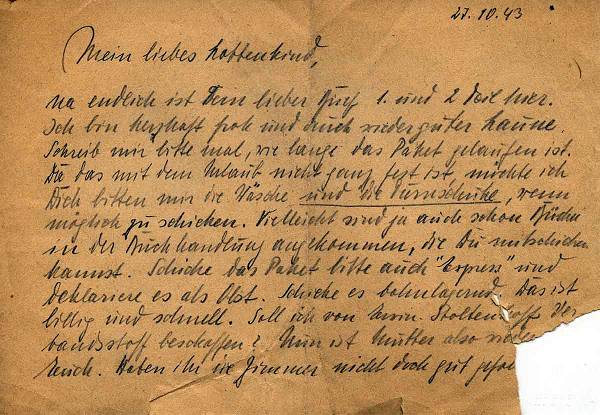 27.10.43
Mein liebes Lottenkind,
na endlich ist Dein lieber Brief 1. und 2 Teil hier.
Ich bin herzhaft froh und auch wieder guter Laune.
Schreib mir bitte mal, wie lange das Paket gelaufen ist.
Da das mit dem Urlaub nicht ganz fest ist, möchte ich
Dich bitten mir die Wäsche und die Turnschuhe, wenn
möglich zu schicken. Vielleicht sind ja auch schon Bücher
in der Buchhandlung angekommen, die Du mitschicken
kannst. Schicke das Paket bitte auch "Express" und
deklariere es als Obst. Schicke es bahnlagernd. Das ist
billig und schnell. Soll ich von Ver
bandsstoff beschaffen? Nun ist Mutter also wieder
Euch. Haben ihr die Zimmer nicht doch gut